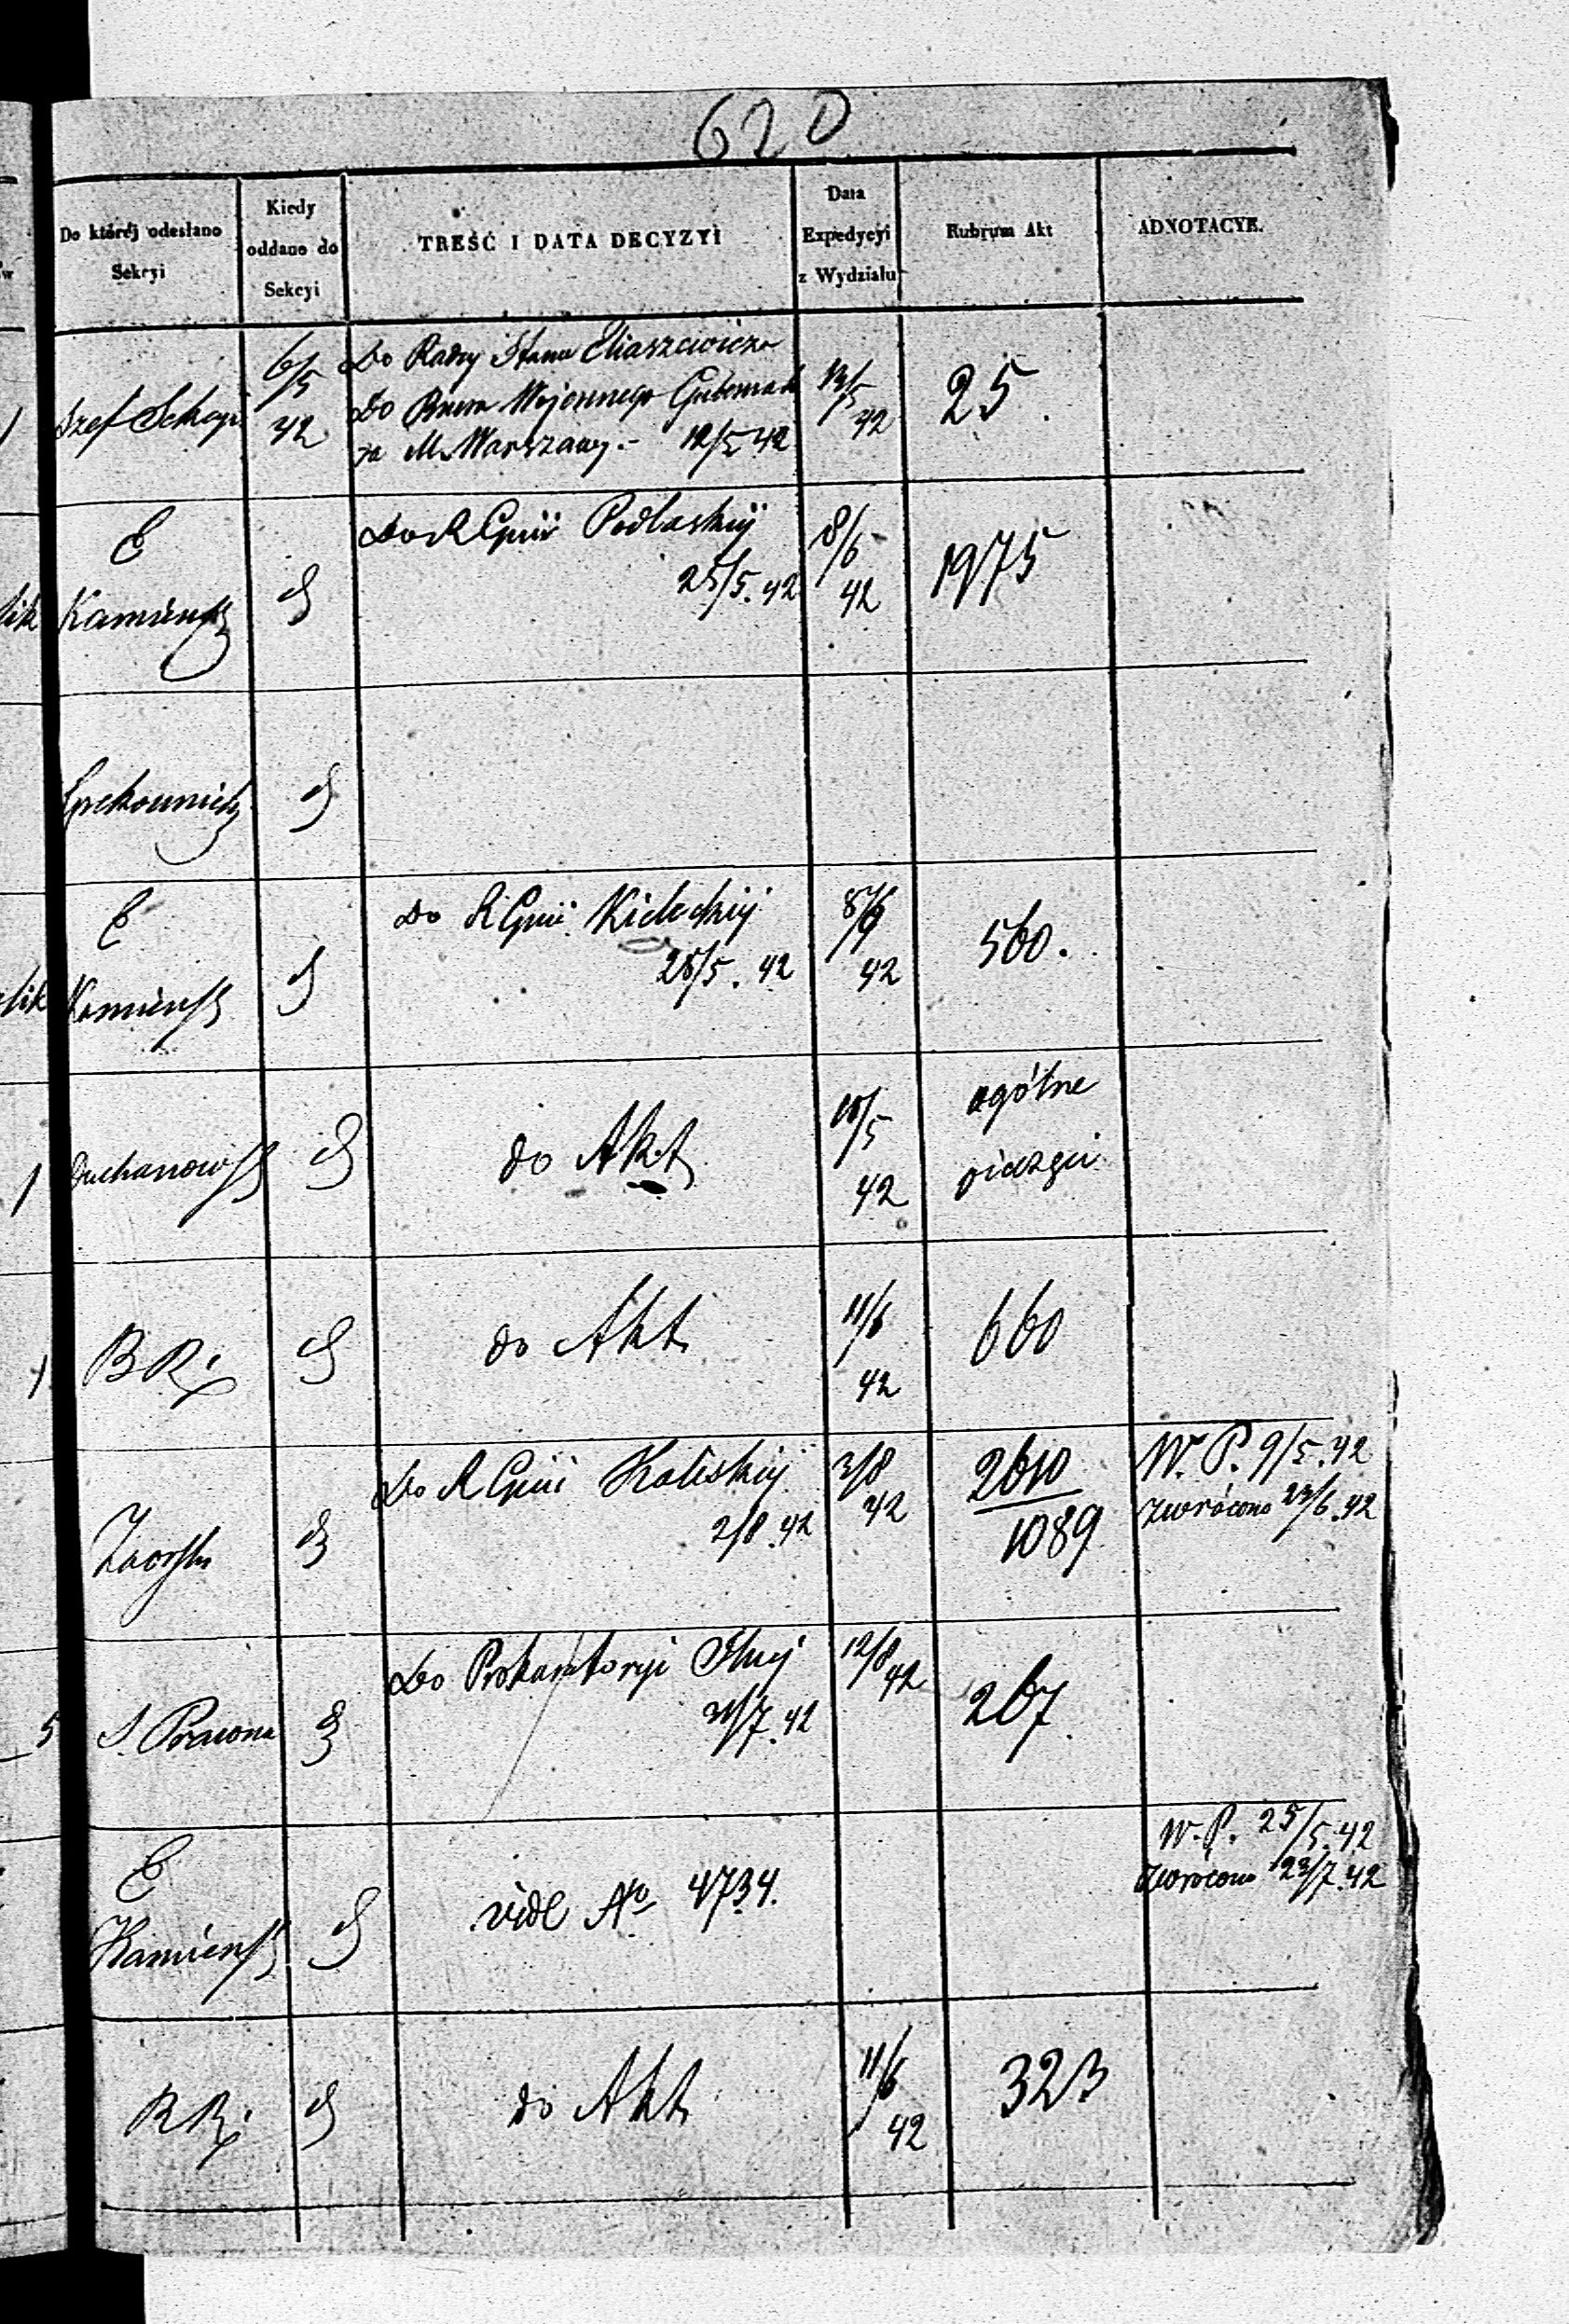 620
Do któréj odesłano Sekcyi
Kiedy oddano do Sekcyi
TREŚĆ I DATA DECYZYI
Data Expedycyi z Wydziału
Rubrum Akt
ADNOTACYE.
Szef Sekcyi
6/5 42
Do Radcy Stanu Eliaszewicza
Do Biura Wojennego Gubernato
ra M. Warszawy.- 12/5 42
13/5 42
25.
E
Kamieńsk
Do R Gnii Podlaskiij
25/5. 42
8/6 42
1975
E
Kamieńsk
Do R Gnii Kieleckiij
28/5. 42
42
560.
Duchanowsk
do Akt
10/5
42
ogólne
B R
do Akt
11/6
42
660
Do R Gnii Kaliskiij
2/8. 42
3/8 42
2610
1089
W. P. 9/5. 42
zwrócono 23/6. 42
S. Prawna
Do Prokuratoryi
31/7. 42
12/8 42
267.
E
Kamieńsk
vide No 4734.
W. P. 25/5. 42
zwrócono 23/7. 42
do Akt
11/6
42
323